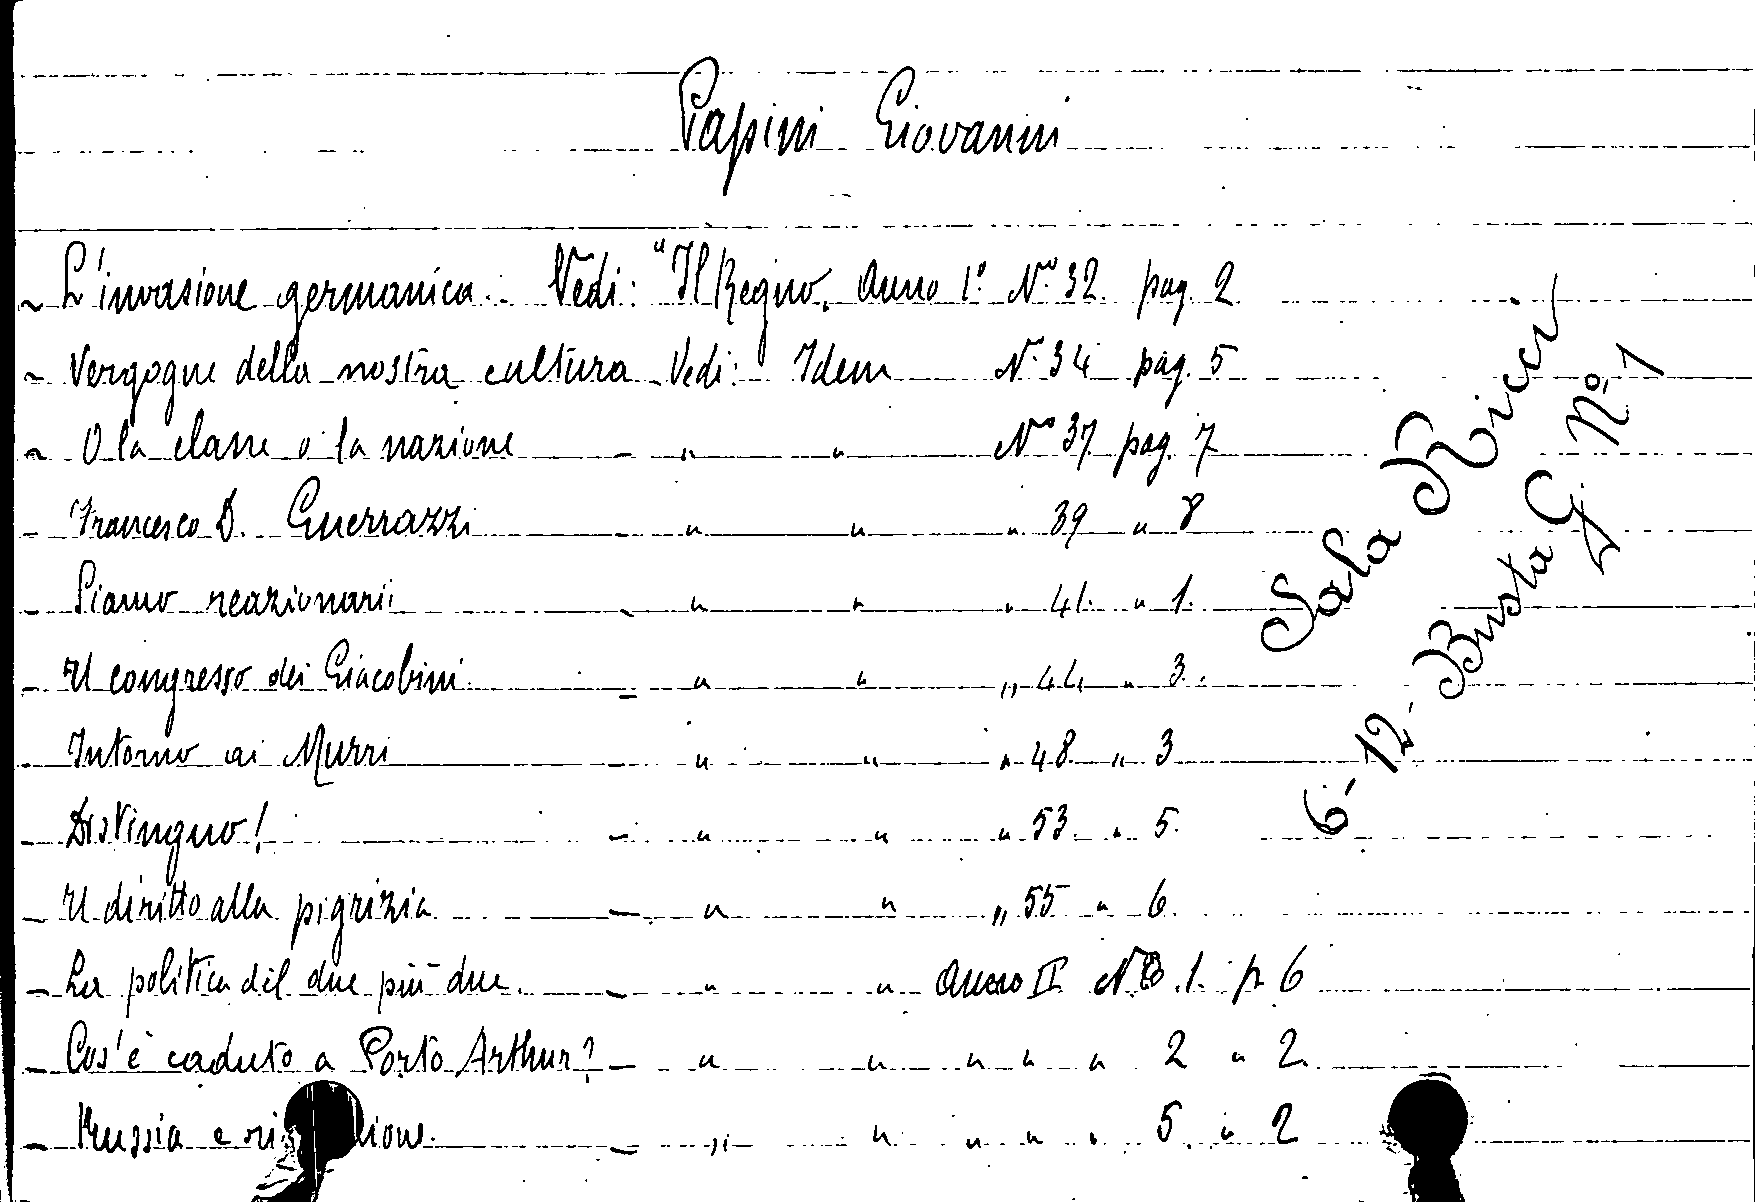 Papini Giovanni
~ L'invasione germanica. Vedi: "Il Regno. Anno 1º Nº 32. pag. 2
~ Vergogne della nostra cultura Vedi: Idem Nº 34 pag. 5
~ O la classe o la nazione - " " Nº 37 pag. 7
- Francesco D. Guerrazzi - " " " 39 " 8
- Siamo reazionari: - " " " 41. " 1.
- Il congresso dei Giacobini - " " " 44 " 3.
- Intorno ai Murri - " " " 48 " 3
- Distinguo! - " " " 53. " 5.
- Il diritto alla pigrizia - " " " 55 " 6
- La politica del due più due. - " " Anno II N. 1. p. 6
- Cos'è caduto a Porto Arthur? - " " " " " 2 " 2.
- Russia e - " " " " " 5. " 2
Sala Ricci
6-12- Busta G. Nº 1